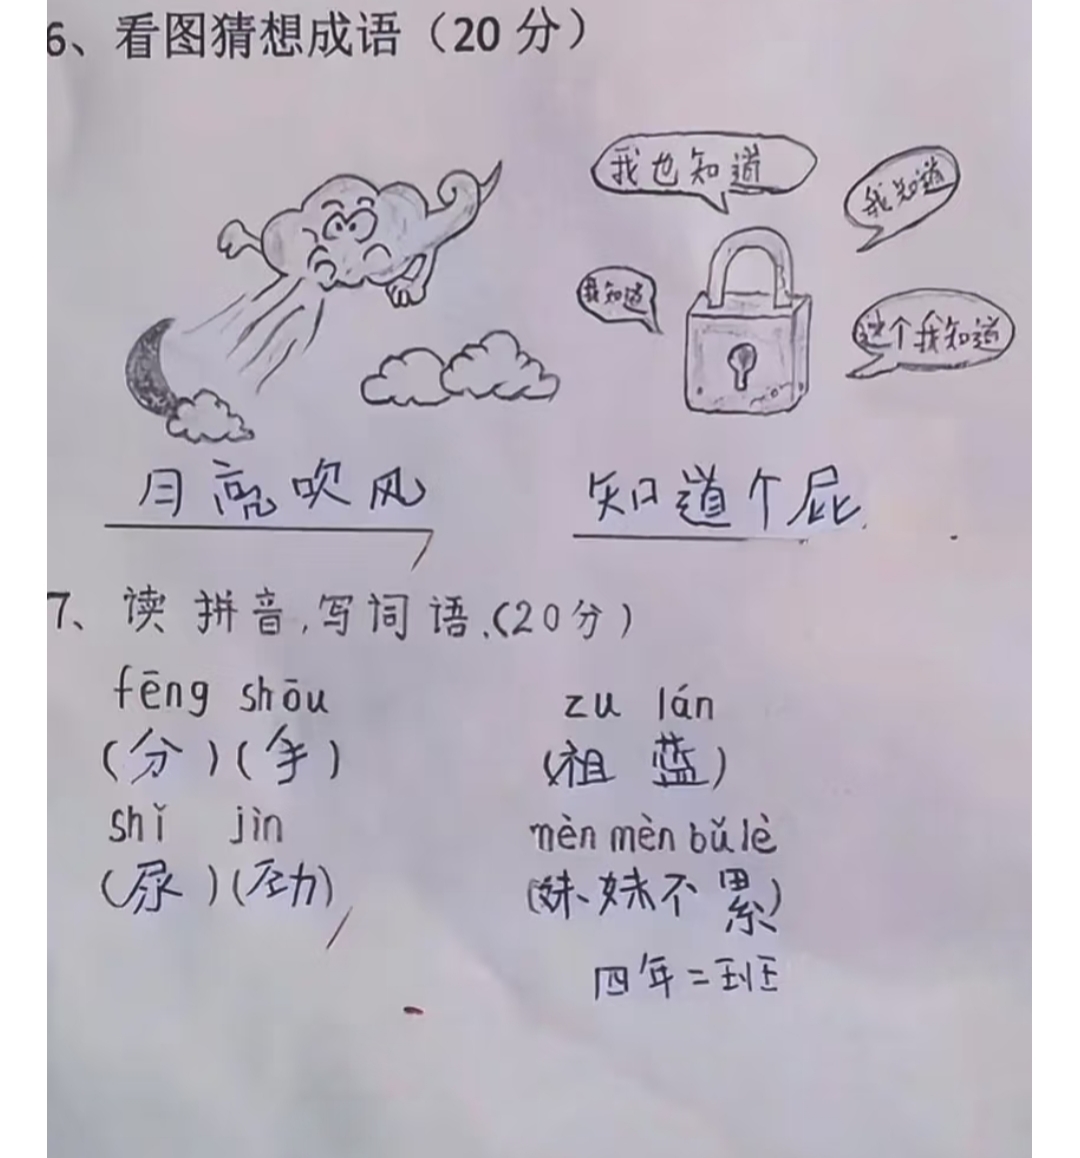 6、看图猜想成语（20分）
我也知道
我知道
我知道
这个我知道
月亮吹风
知道个屁
7、读拼音,写词语.(20分)
fēng shōu
zu lán
(分)(手)
(祖 蓝)
shǐ jìn
mèn mèn bǔ lè
(尿)(劲)
(妹妹不累)
四年二班